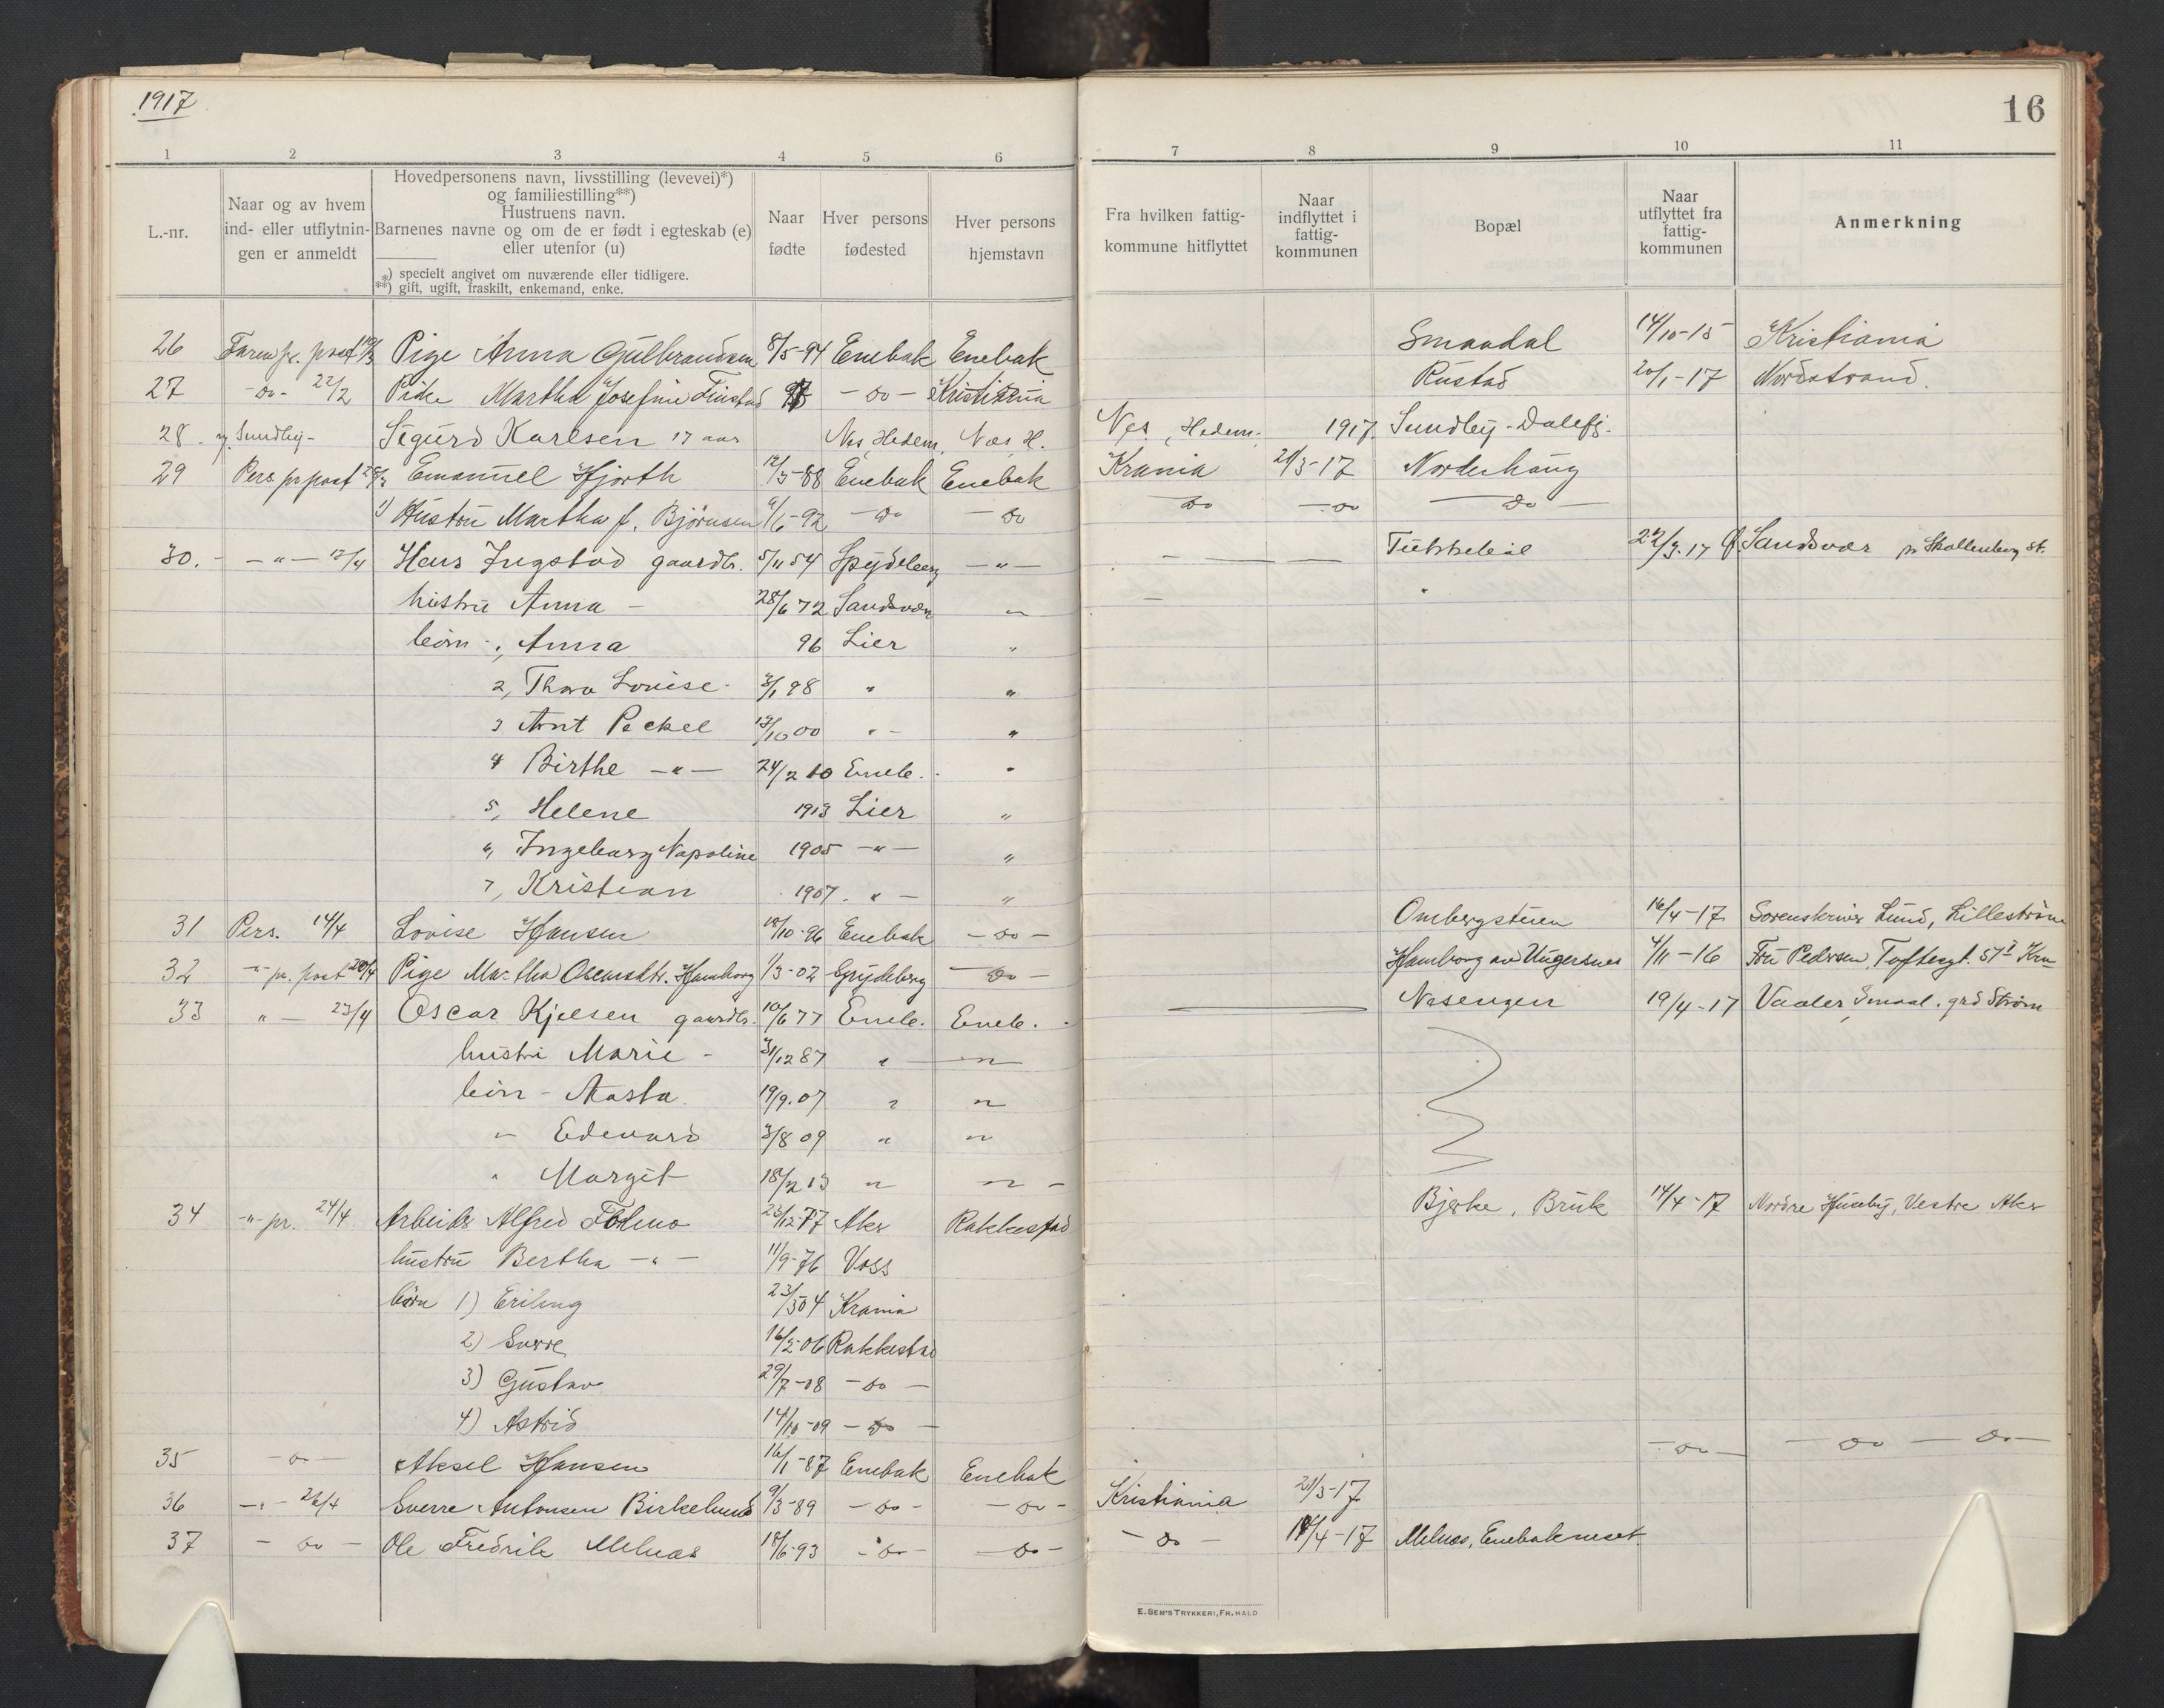 1917
16
1 2 3 4 5 6 7 8 9 10 11
L.-nr.
Naar og av hvem
ind- eller utflytnin-
gen er anmeldt
Hovedpersonens navn, livsstilling (levevei)*)
og familiestilling**)
Hustruens navn.
Barnenes navne og om de er født i egteskab (e)
eller utenfor (u)
*) specielt angivet om nuværende eller tidligere.
**) gift, ugift, fraskilt, enkemand, enke.
Naar
fødte
Hver persons
fødested
Hver persons
hjemstavn
Fra hvilken fattig-
kommune hitflyttet
Naar
indflyttet i
fattig-
kommunen
Bopæl
Naar
utflyttet fra
fattig-
kommunen
Anmerkning
26 Faren pr. post Pige Anna Gulbrandsen 8/5-94 Enebak Enebak Smaadal 14/10-15 Kristiania
27 -do- 22/2 Pike Martha Josefine Finstad -do- Kristiania Rustad 20/1-17 Nordstrand.
28. Sundby- Sigurd Karlsen 17 aar Nes, Hedem. Nes, H. Nes, Hedem. 1917. Sundby-Dalefj.
29 Pers pr post Emanuel Hjorth 12/3-88 Enebak Enebak Krania 21/3-17 Norderhaug
1) Hustru Martha f. Björnsen 9/6-92 -do -do -do -do -do-
30. -"- 12/4 Hans Ingstad gaardbr. 5/11 54 Spydeberg -"- 22/3.17 Sandsvær pr Skollenborg st.
hustru Anna - 28/6 72 Sandsvær "
børn 1, Anna 96 Lier "
2, Thora Louise. 3/1 98 " "
3 Arnt Peckel 13/10 00 " - "
4 Birthe -"- 24/2 10 Eneb. "
5, Helene 1913 Lier "
6, Ingeborg Napoline 1905 -"- "
7, Kristian 1907. " - "
31 Pers. 14/4 Lovise Hansen 18/10-96 Enebak -do- Ombergstuen 16/4-17 Sorenskriver Lund, Lilleström
32 -"- pr. post 20/4 Pige Martha Hamborg 1/3-02 Spydeberg -do- Hamborg av Ungersnes 4/11-16 Fru Pedersen, Toftesgt. 57 I Kra
33 " - 23/4 Oscar Kjelsen gaardbr. 10/6 77 Eneb. Eneb. Nesengen 19/4-17 Vaaler, Smaal. grd Strøm
hustru Marie - 31/12 87 " "
børn - Aasta 19/9.07 " "
" Edevard 3/8 09 " "
" Margit 18/2 13 " " -
34 -"- pr. 24/4 Arbeider Alfred 23/12-77 Aker Rakkestad Bjerke, Bruk 14/4-17 Nordre Huseby, Vestre Aker
hustru Bertha -"- 11/9-76 Voss
børn 1) Erling 23/5 04 Krania
2) Sverre 16/2-06 Rakkestad
3) Gustav 29/7-08 -do-
4) Astrid 14/10-09 -do-
35 -do- Aksel Hansen 16/1-87 Enebak Enebak -do- -do- -do-
36 -"- 26/4 Sverre Antonsen Birkelund 9/3-89 -do- -do- Kristiania 21/3-17
37 -do- Ole Fredrik Melnæs 18/6-93 -do- -do- -do- 18/4-17 Melnæs, Enebakneset.
E. SEM'S TRYKKERI, FR.HALD